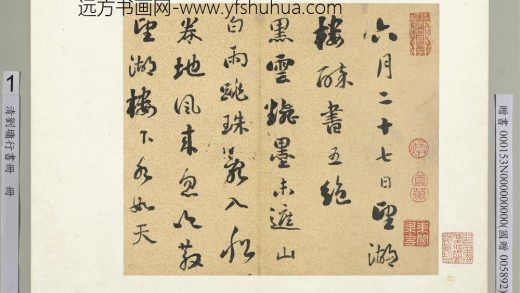 远方书画网-www.yfshuhua.com
六月二十七日望湖
楼醉書五絶
黑雲飜墨未遮山
白雨跳珠亂入船
卷地風来忽吹散
望湖樓下水如天
1
清劉墉行書冊 冊
贈書 000153N000000000(國贈 005892)